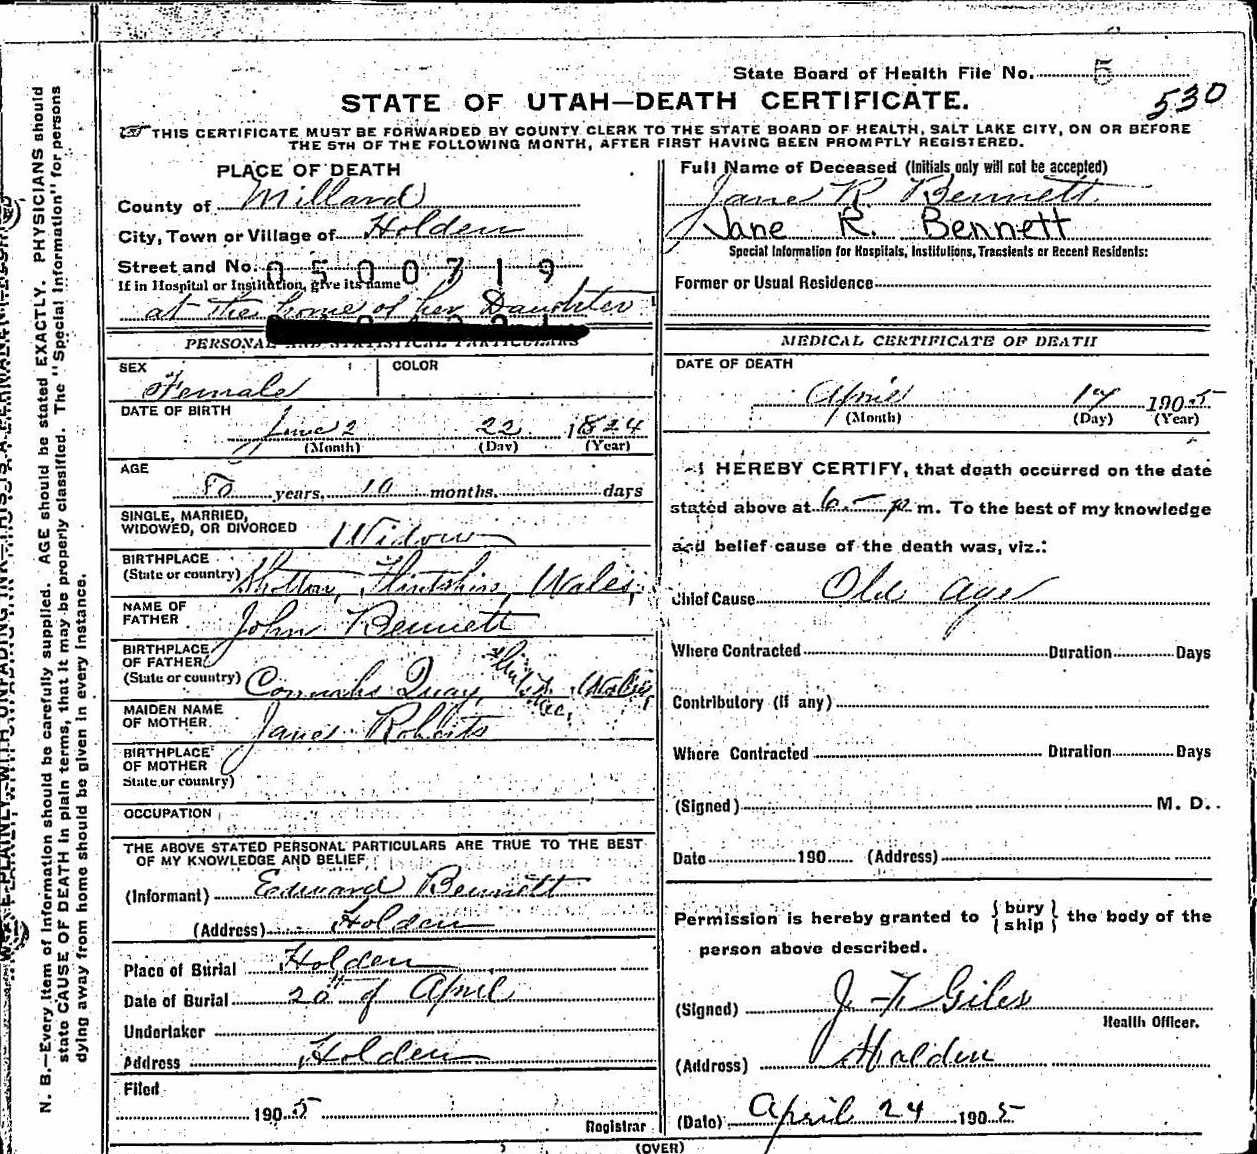 State Board of Health File No. 5
530
STATE OF UTAH—DEATH CERTIFICATE.
THIS CERTIFICATE MUST BE FORWARDED BY COUNTY CLERK TO THE STATE BOARD OF HEALTH, SALT LAKE CITY, ON OR BEFORE
THE 5TH OF THE FOLLOWING MONTH, AFTER FIRST HAVING BEEN PROMPTLY REGISTERED.
PLACE OF DEATH
County of Millard
City, Town or Village of Holden
Street and No. 0500719
If in Hospital or Institution, give its name
at the home of her Daughter
PERSONAL AND STATISTICAL PARTICULARS
SEX
Female
COLOR
DATE OF BIRTH
June 22 1824
(Month) (Day) (Year)
AGE
80 years, 10 months. days
SINGLE, MARRIED,
WIDOWED, OR DIVORCED Widow
BIRTHPLACE
(State or country) Shotton, Flintshire, Wales,
NAME OF
FATHER John Bennett
BIRTHPLACE
OF FATHER
(State or country) Connahs Quay, Wales,
MAIDEN NAME
OF MOTHER Jane Roberts
BIRTHPLACE
OF MOTHER
State or country)
OCCUPATION
THE ABOVE STATED PERSONAL PARTICULARS ARE TRUE TO THE BEST
OF MY KNOWLEDGE AND BELIEF
(Informant) Edward Bennett
(Address) Holden
Place of Burial Holden
Date of Burial 20th of April
Undertaker
Address Holden
Filed
1905
Registrar
Full Name of Deceased (Initials only will not be accepted)
Jane R Bennett
Jane R. Bennett
Special Information for Hospitals, Institutions, Transients or Recent Residents:
Former or Usual Residence
MEDICAL CERTIFICATE OF DEATH
DATE OF DEATH
April 17 1905
(Month) (Day) (Year)
I HEREBY CERTIFY, that death occurred on the date
stated above at 6 p m. To the best of my knowledge
and belief cause of the death was, viz.:
Chief Cause Old age
Where Contracted Duration Days
Contributory (if any)
Where Contracted Duration Days
(Signed) M. D.
Date 190 (Address)
Permission is hereby granted to {bury
ship} the body of the
person above described.
(Signed) J. F. Giles
Health Officer.
(Address) Holden
(Date) April 24 1905
(OVER)
N. B.—Every item of Information should be carefully supplied. AGE should be stated EXACTLY. PHYSICIANS should
state CAUSE OF DEATH in plain terms, that it may be properly classified. The "Special Information" for persons
dying away from home should be given in every instance.